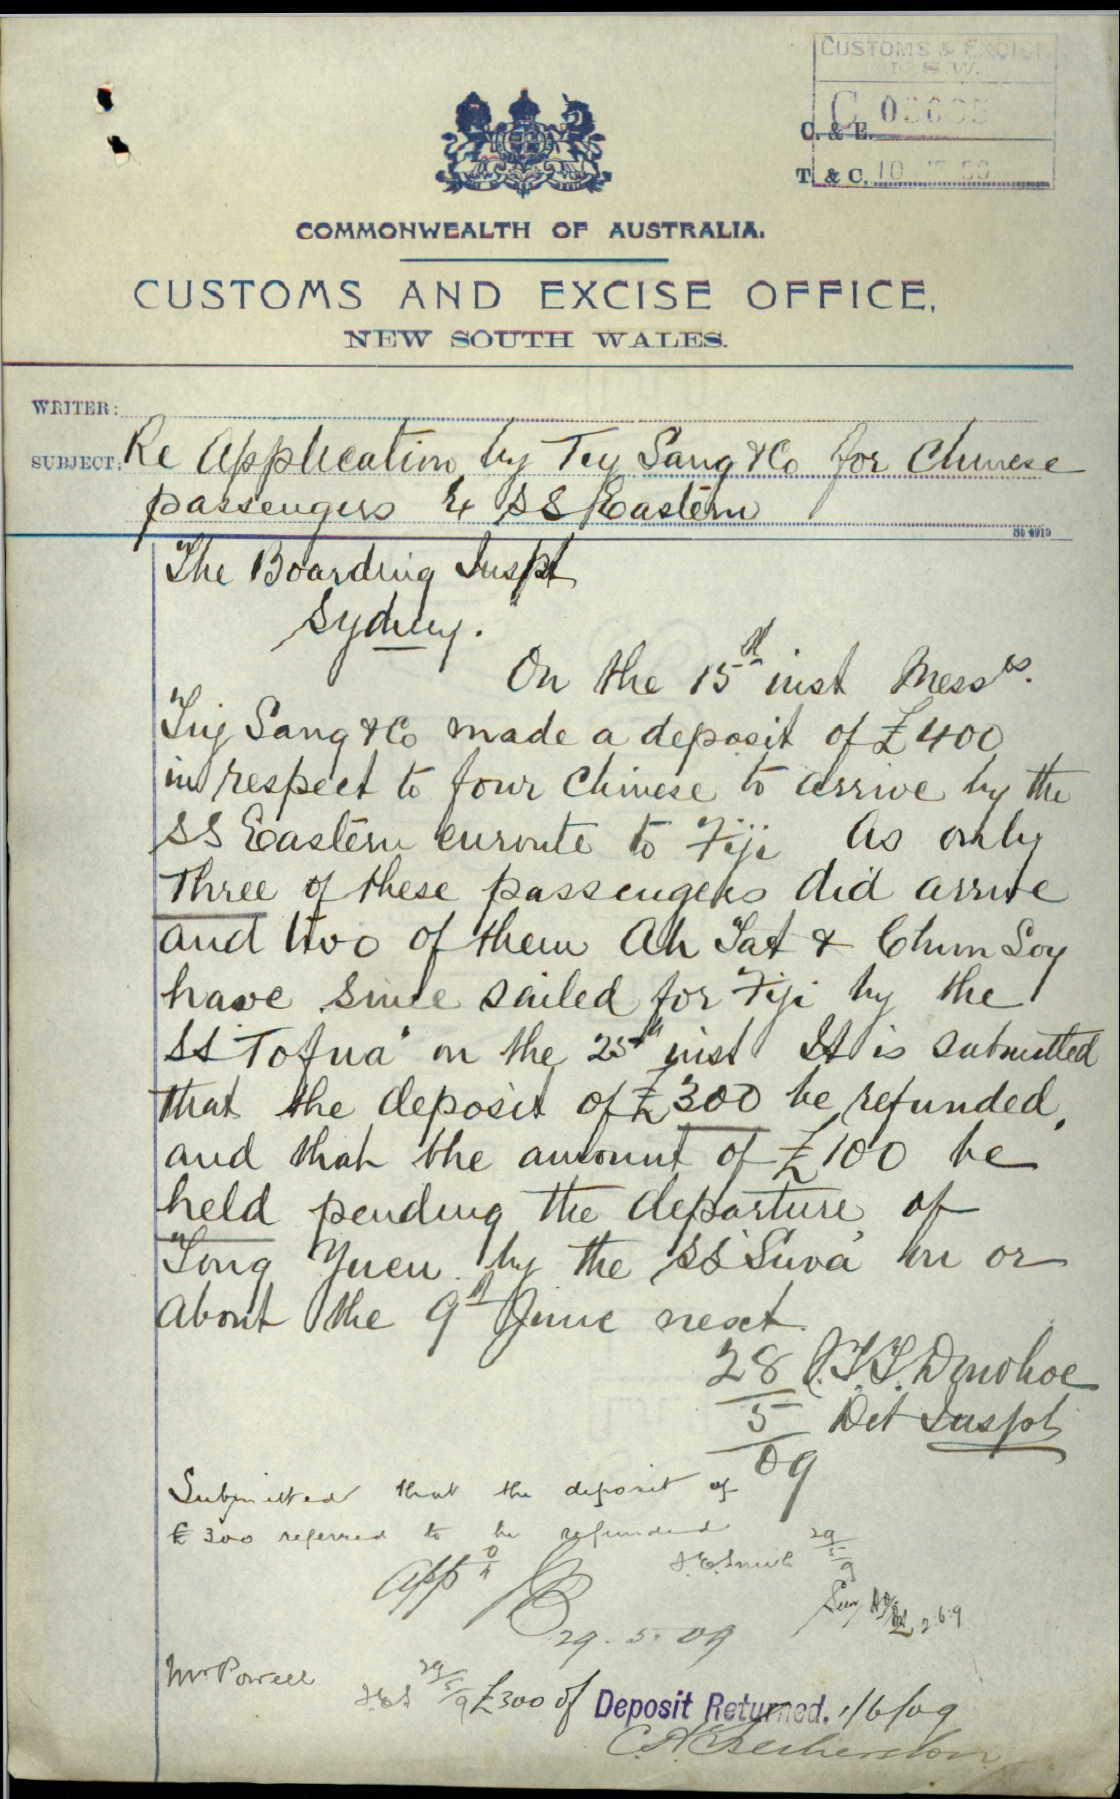 CUSTOMS & EXCISE
N.S.W.
C. & E.
T. & C.
COMMONWEALTH OF AUSTRALIA.
CUSTOMS AND EXCISE OFFICE,
NEW SOUTH WALES.
WRITER:
SUBJECT: Re Application by Tiy Sang & Co for Chinese
passengers Ex SS Eastern
The Boarding Inspt
Sydney.
On the 15th inst Messrs.
Tiy Sang & Co made a deposit of £400
in respect to four Chinese to arrive by the
SS Eastern enroute to Fiji As only
three of these passengers did arrive
and two of them Ah Tat & Chum Soy
have since sailed for Fiji by the
SS "Tofua" on the 25th inst It is submitted
that the deposit of £300 be refunded,
and that the amount of £100 be
held pending the departure of
Tong Yuen by the SS "Suva" on or
about the 9th June next.
28 J.T.T. Donohoe
5 Det Inspt
09
Submitted that the deposit of
£300 referred to be refunded
App
29.5.09
J.E. Smith 29/5/9
2.6.9
Mr Powell
29/5/9 £300 of Deposit Returned. 1/6/09